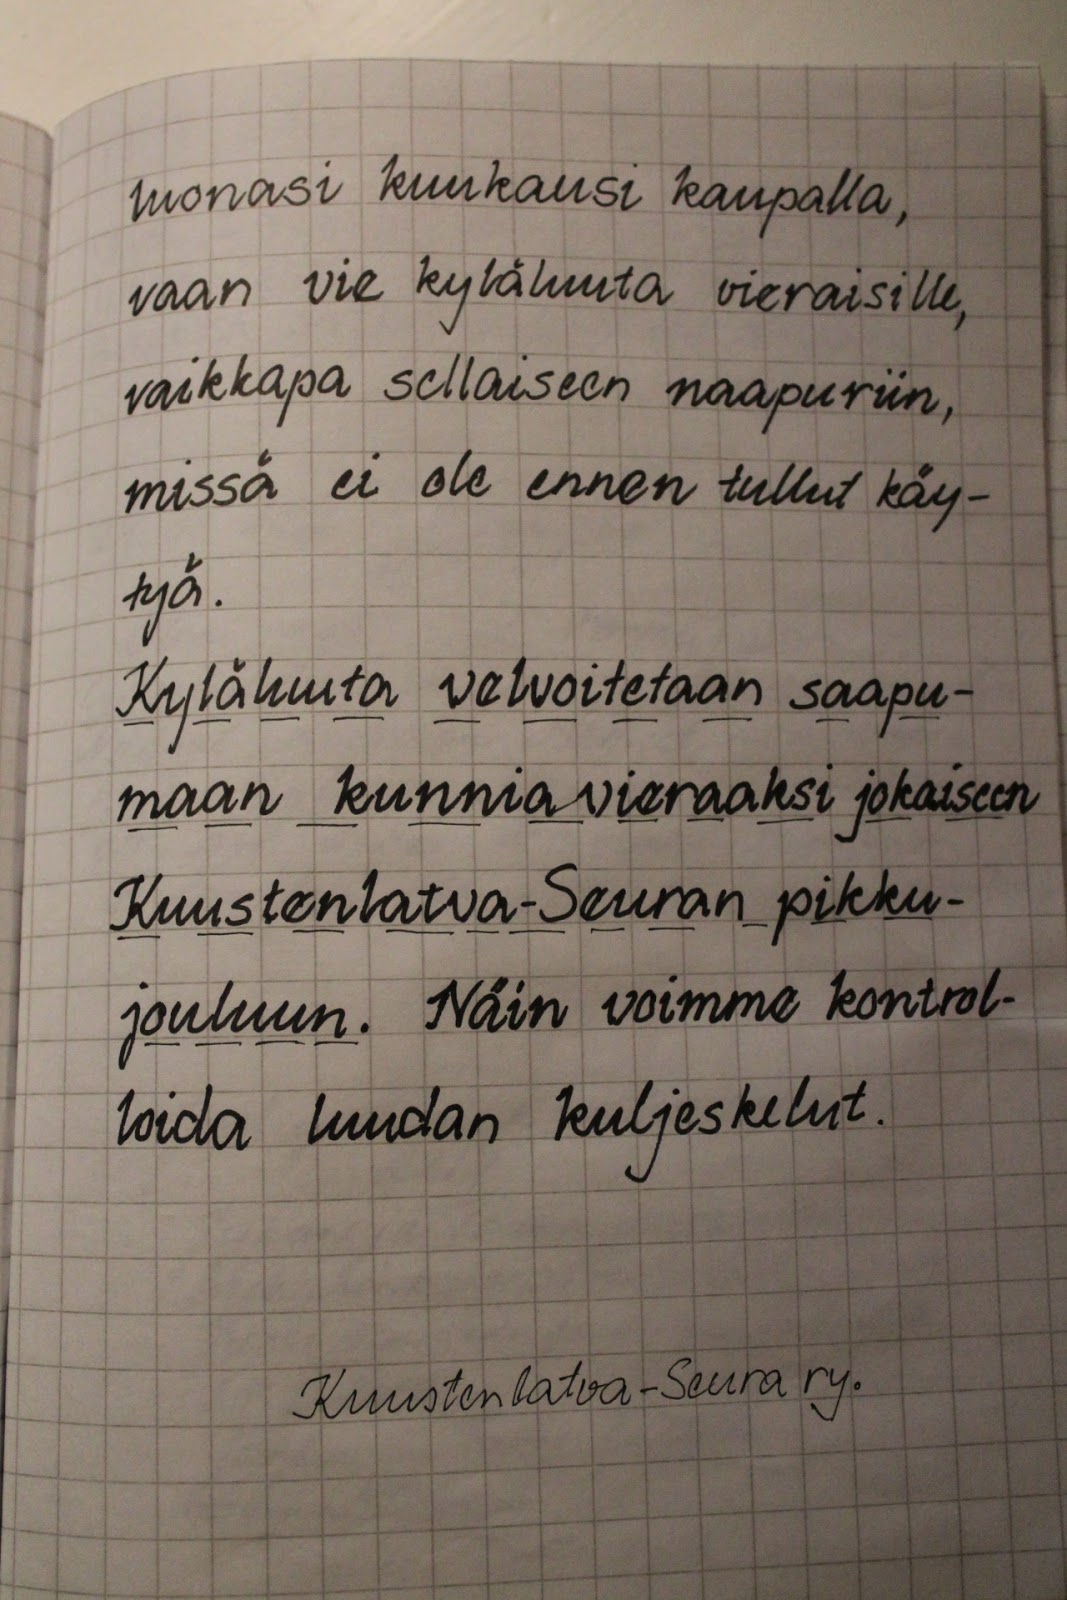 luonasi kuukausi kaupalla,
vaan vie kyläluuta vieraisille,
vaikkapa sellaiseen naapuriin,
missä ei ole ennen tullut käy-
tyä.
Kyläluuta velvoitetaan saapu-
maan kunniavieraaksi jokaiseen
Kuustenlatva-Seuran pikku-
jouluun. Näin voimme kontrol-
loida luudan kuljeskelut.
Kuustenlatva-Seura ry.